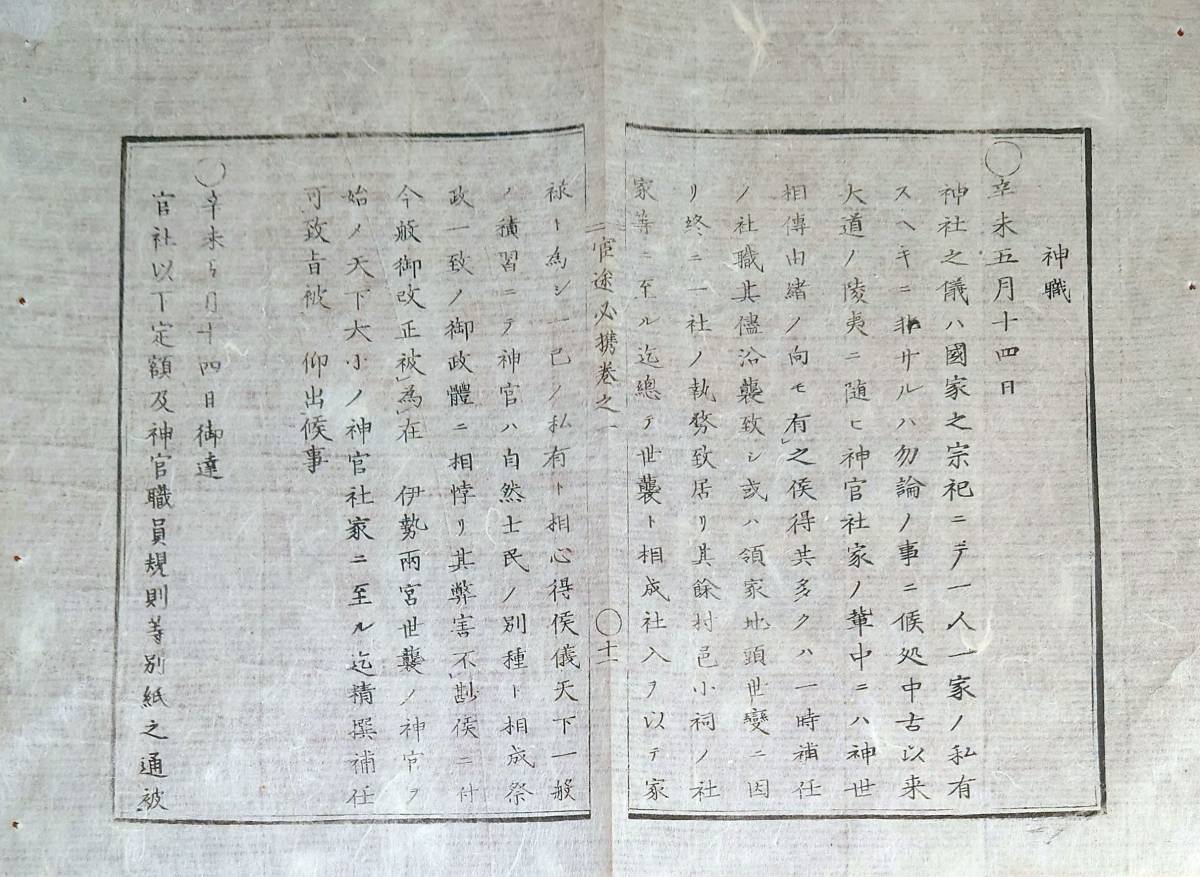 神職
○辛未五月十四日
神社之儀ハ國家之宗祀ニテ一人一家ノ私有
スヘキニ非サルハ勿論ノ事ニ候処中古以来
大道ノ陵夷ニ随ヒ神官社家ノ輩中ニハ神世
相傳由緒ノ向モ有之候得共多クハ一時補任
ノ社職其儘沿襲致シ或ハ領家地頭世變ニ因
リ終ニ一社ノ執務致居リ其餘村邑小祠ノ社
家等ニ至ル迄總テ世襲ト相成社入ヲ以テ家
官途必携巻之一 ○十一
禄ト為シ一己ノ私有ト相心得候儀天下一般
ノ積習ニテ神官ハ自然士民ノ別種ト相成祭
政一致ノ御政體ニ相悖リ其弊害不尠候ニ付
今般御改正被為在 伊勢兩宮世襲ノ神官ヲ
始メ天下大小ノ神官社家ニ至ル迄精撰補任
可致旨被 仰出候事
○辛未 月十四日御達
官社以下定額及神官職員規則等別紙之通被